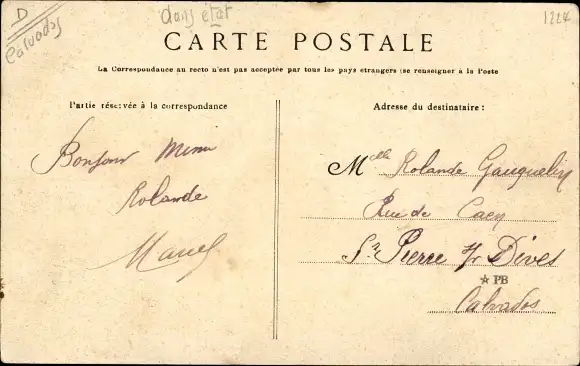 D
Calvados
dans état
1224
CARTE POSTALE
La Correspondance au recto n'est pas acceptée par tous les pays étrangers (se renseigner à la Poste
Partie réservée à la correspondance
Bonjour Mimi
Rolande
Marcel
Adresse du destinataire :
Mlle Rolande Gauquelin
Rue de Caen
St Pierre s/r Dives
☆ PB
Calvados